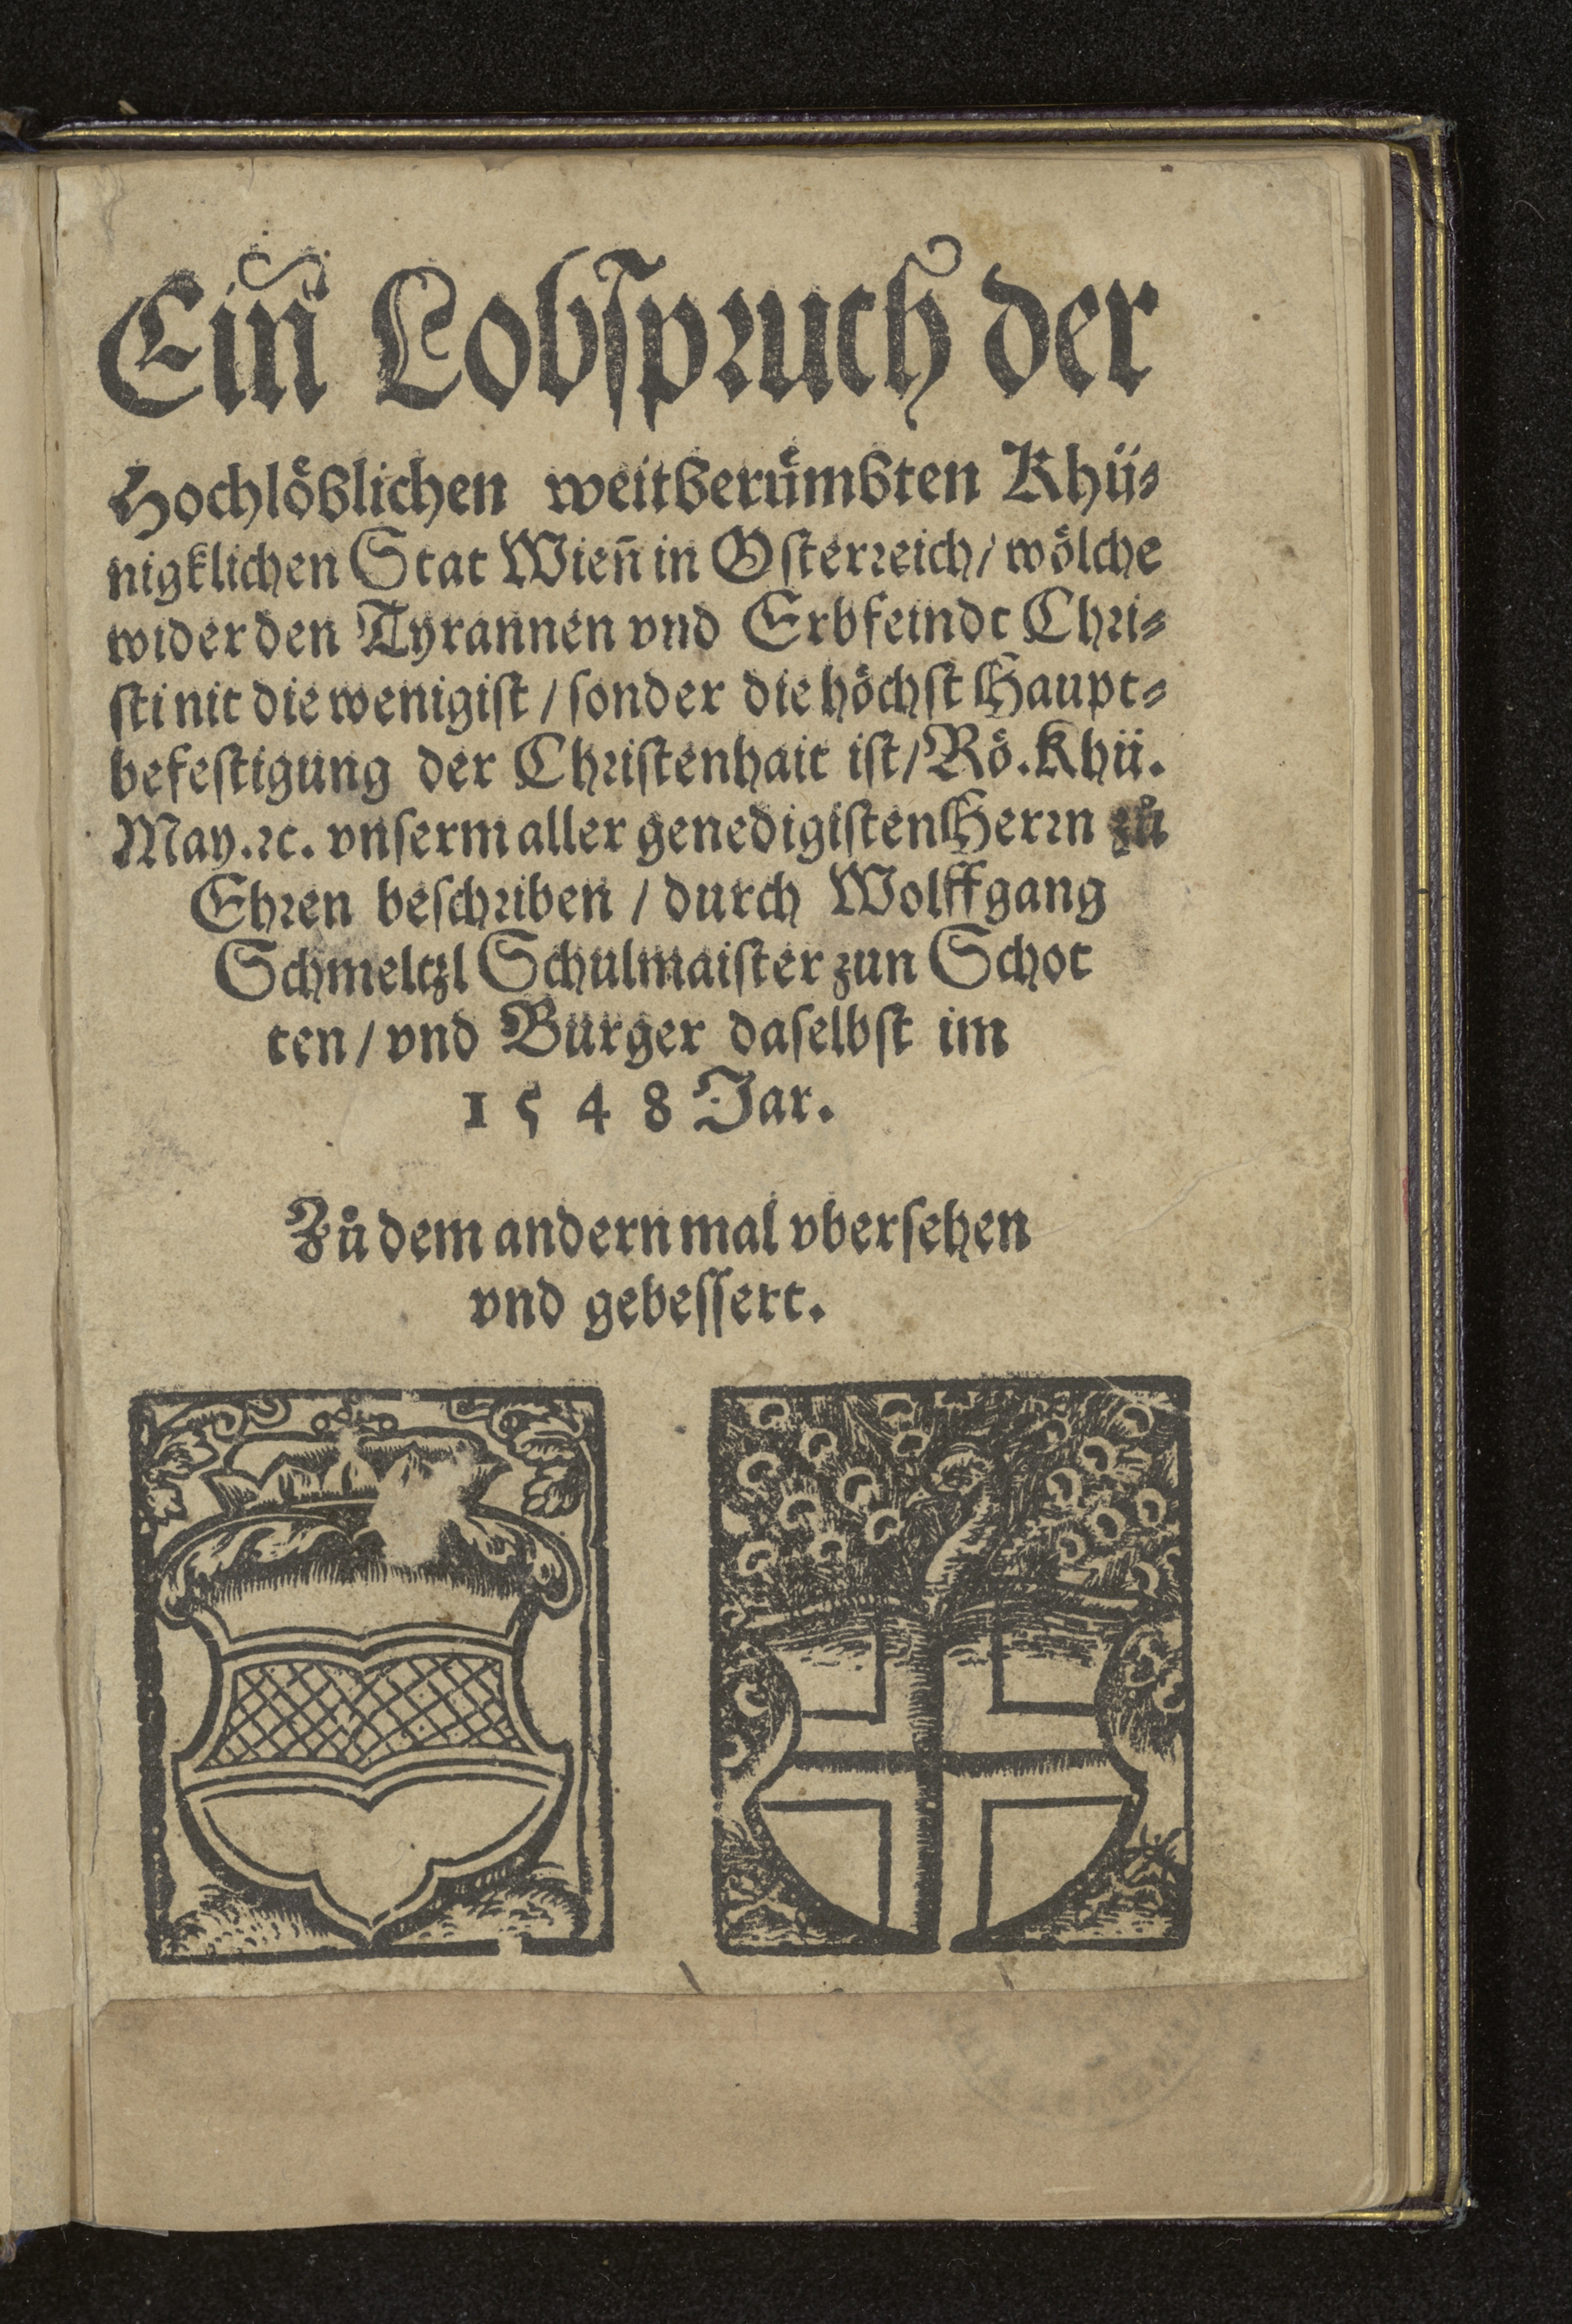 Ein̄ Lobſpruch der
Hochlöblichen weitberuͤmbten Khü⸗
nigklichen Stat Wien̄ in Oſterreich / woͤlche
wider den Tyrannen vnd Erbfeindt Chri⸗
ſti nit die wenigiſt / ſonder die hoͤchſt Haupt⸗
befeſtigung der Chriſtenhait iſt / Roͤ. Khü.
May. ꝛc. vnſerm aller genedigiſten Herrn zů
Ehren beſchriben / durch Wolffgang
Schmeltzl Schulmaiſter zun Schot
ten / vnd Burger daſelbſt im
1548 Jar.
Zů dem andern mal vberſehen
vnd gebeſſert.